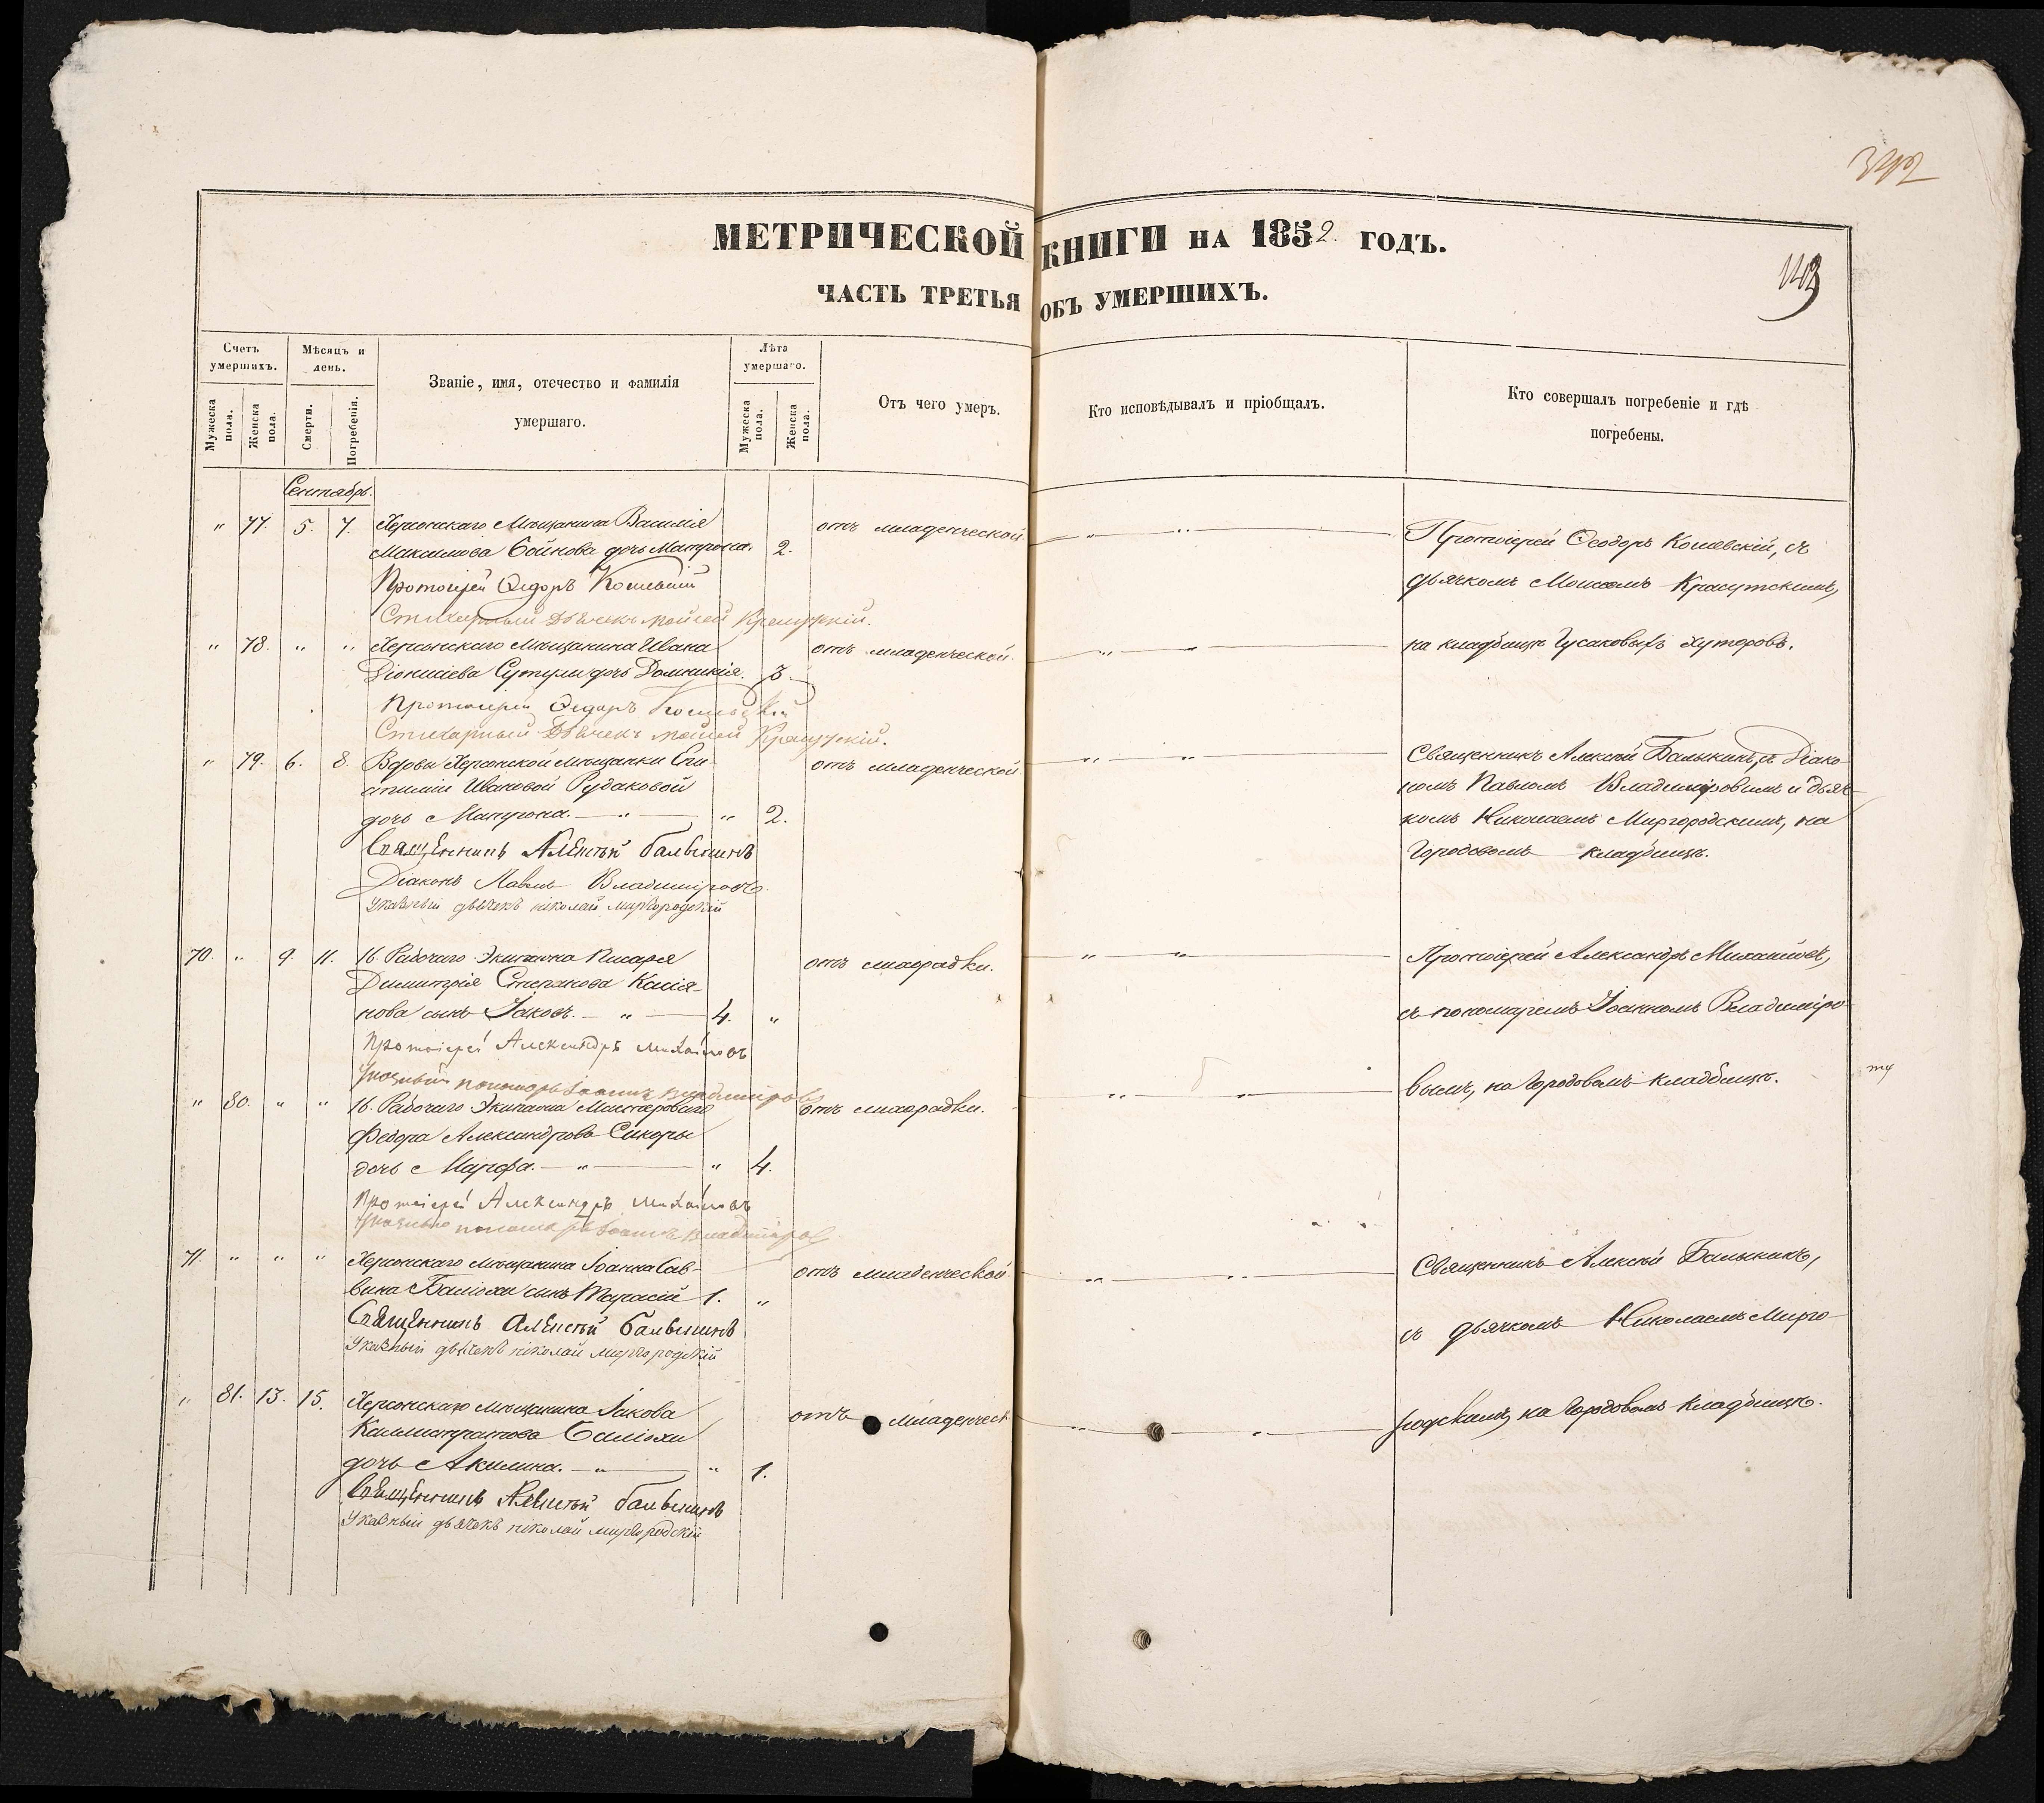 342
МЕТРИЧЕСКОЙ КНИГИ НА 1852. ГОДЪ.
ЧАСТЬ ТРЕТЬЯ ОБЪ УМЕРШИХЪ.
Счетъ умершихъ.
Мѣсяцъ и день.
Званіе, имя, отечество и фамилія умершаго.
Лѣта умершаго.
Отъ чего умеръ.
Кто исповѣдывалъ и пріобщалъ.
Кто совершалъ погребеніе и гдѣ погребены.
Мужеска пола.
Женска пола.
Смерти.
Погребенія.
Мужеска пола.
Женска пола.
Сентябрь.
" 77. 5. 7. Херсонскаго Мѣщанина Василія отъ младенческой.
Максимова Бойкова дочь Матрона. 2.
Протоіерей Ѳеодоръ Кошевскій, съ
дьячкомъ Моисеемъ Красутскимъ,
Протоіерей Ѳедоръ Кошевскій
Стихарный Дьячекъ Мойсей
" 78. " " Херсонскаго Мѣщанина Ивана отъ младенческой.
на кладбищѣ Гусаковыхъ Хуторовъ.
Діонисіева Сутулы дочь Домникія. 3
Протоіерей Ѳедоръ Кошевскій
Стихарный Дьячекъ Мойсей
" 79. 6. 8. Вдовы Херсонской Мѣщанки Епи- отъ младенческой
Священникъ Алексѣй Балыкинъ, съ Діако-
стиміи Ивановой Рудаковой
номъ Павломъ Владиміровымъ и дьяч-
дочь Матрона. " " 2.
комъ Николаемъ Миргородскимъ, на
Городовомъ кладбищѣ.
Священникъ Алексѣй Балыкинъ
Діаконъ Павелъ Владиміровъ
Указный дьячекъ Николай Миргородскій
70. " 9. 11. 16. Рабочаго Экипажа Писаря отъ лихорадки.
Протоіерей Александръ Михайловъ,
Димитрія Степанова Касія-
нова сынъ Іаковъ. " 4. "
съ пономаремъ Іоанномъ Владиміро-
Протоіерей Александръ Михайловъ
Указный пономарь Іоаннъ Владиміровъ
вымъ, на Городовомъ кладбищѣ.
" 80. " " 16. Рабочаго Экипажа Мастероваго отъ лихорадки.
Федора Александрова Сикоры
дочь Марфа. " " 4.
Протоіерей Александръ Михайловъ
Указный пономарь Іоаннъ Владиміровъ
71. " " " Херсонскаго Мѣщанина Іоанна Сав- отъ младенческой
Священникъ Алексѣй Балыкинъ,
вина сынъ Тарасій 1. "
съ дьячкомъ Николаемъ Мирго-
Священникъ Алексѣй Балыкинъ
Указный дьячекъ Николай Миргородскій
" 81. 13. 15. Херсонскаго Мѣщанина Іакова отъ младенческ.
родскимъ, на Городовомъ кладбищѣ.
Каллистратова
дочь Акилина. " " 1.
Священникъ Алексѣй Балыкинъ
Указный дьячекъ Николай Миргородскій